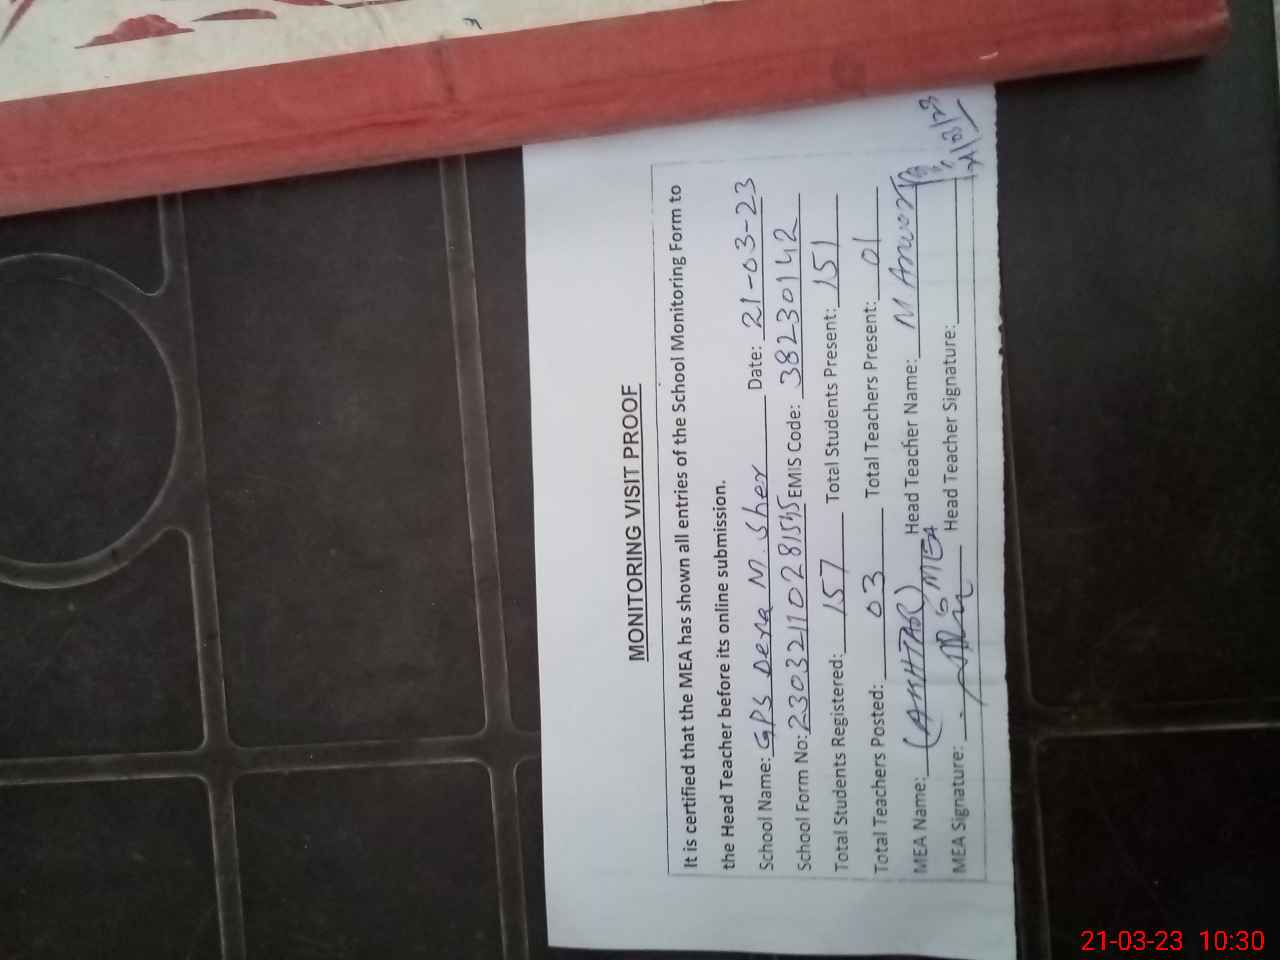 MONITORING VISIT PROOF
It is certified that the MEA has shown all entries of the School Monitoring Form to
the Head Teacher before its online submission.
School Name: GPS Dera M. Sher Date: 21-03-23
School Form No: 230321102815 EMIS Code: 38230142
Total Students Registered: 157 Total Students Present: 151
Total Teachers Posted: 03 Total Teachers Present: 01
MEA Name: (AMHTAR) Head Teacher Name: M Anwar
MEA Signature: MEA Head Teacher Signature:
21/03/23
21-03-23 10:30